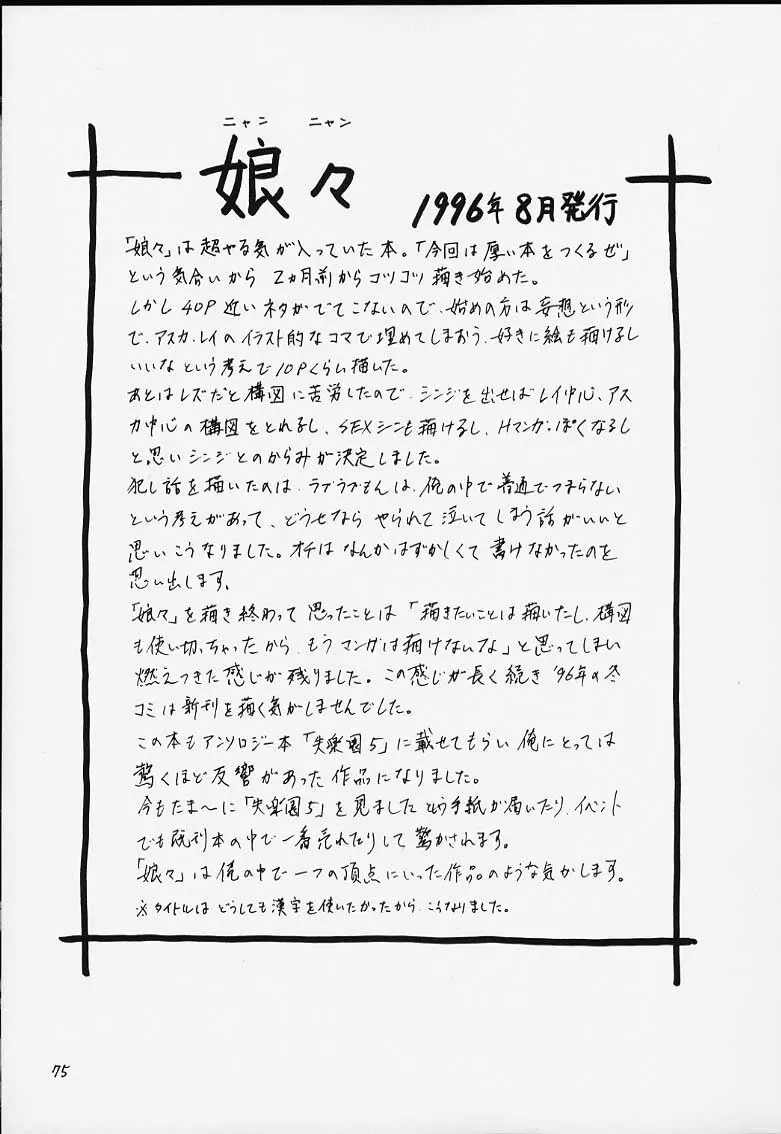 ニャン ニャン
娘々
1996年8月発行
「娘々」は超やる気が入っていた本。「今回は厚い本をつくるぜ」
という気合いから 2カ月前からコツコツ描き始めた。
しかし40P近いネタがでてこないので、始めの方は妄想という形
で、アスカ、レイのイラスト的なコマで埋めてしまおう、好きに絵も描けるし
いいなという考えで10Pくらい描いた。
あとはレズだと構図に苦労したので、シンジを出せばレイ中心、アス
カ中心の構図をとれるし、SEXシーンも描けるし、Hマンガっぽくなるし
と思いシンジとのからみが決定しました。
犯し話を描いたのは、ラブラブもんは、俺の中で普通でつまらない
という考えがあって、どうせなら やられて泣いてしまう話がいいと
思いこうなりました。オチはなんかはずかしくて書けなかったのを
思い出します。
「娘々」を描き終わって思ったことは「描きたいことは描いたし、構図
も使い切っちゃったから、もうマンガは描けないな」と思ってしまい
燃えつきた感じが残りました。この感じが長く続き '96年の冬
コミは新刊を描く気がしませんでした。
この本もアンソロジー本「失楽園5」に載せてもらい俺にとっては
驚くほど反響があった作品になりました。
今もたま〜に「失楽園5」を見ましたという手紙が届いたり、イベント
でも既刊本の中で一番売れたりして驚かされます。
「娘々」は俺の中で一つの頂点にいった作品のような気がします。
※タイトルはどうしても漢字を使いたかったから、こうなりました。
75